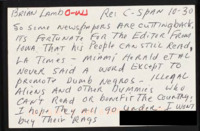 BRIAN LAMB O-Was RE: C-SPAN 10-30
SO SOME NEWSPAPERS ARE CUTTING BACK
ITS FORTUNATE FOR THE EDITOR FROM
IOWA THAT HIS PEOPLE CAN STILL READ,
LA TIMES - MIAMI HERALD ET AL
NEVER SAID A WORD EXCEPT TO
PROMOTE DUMB NEGROS - ILLEGAL
ALIENS AND OTHER DUMMIES WHO
CAN'T READ OR BENEFIT THE COUNTRY.
I HOPE THEY ALL GO UNDER - I WON'T
BUY THEIR RAGS